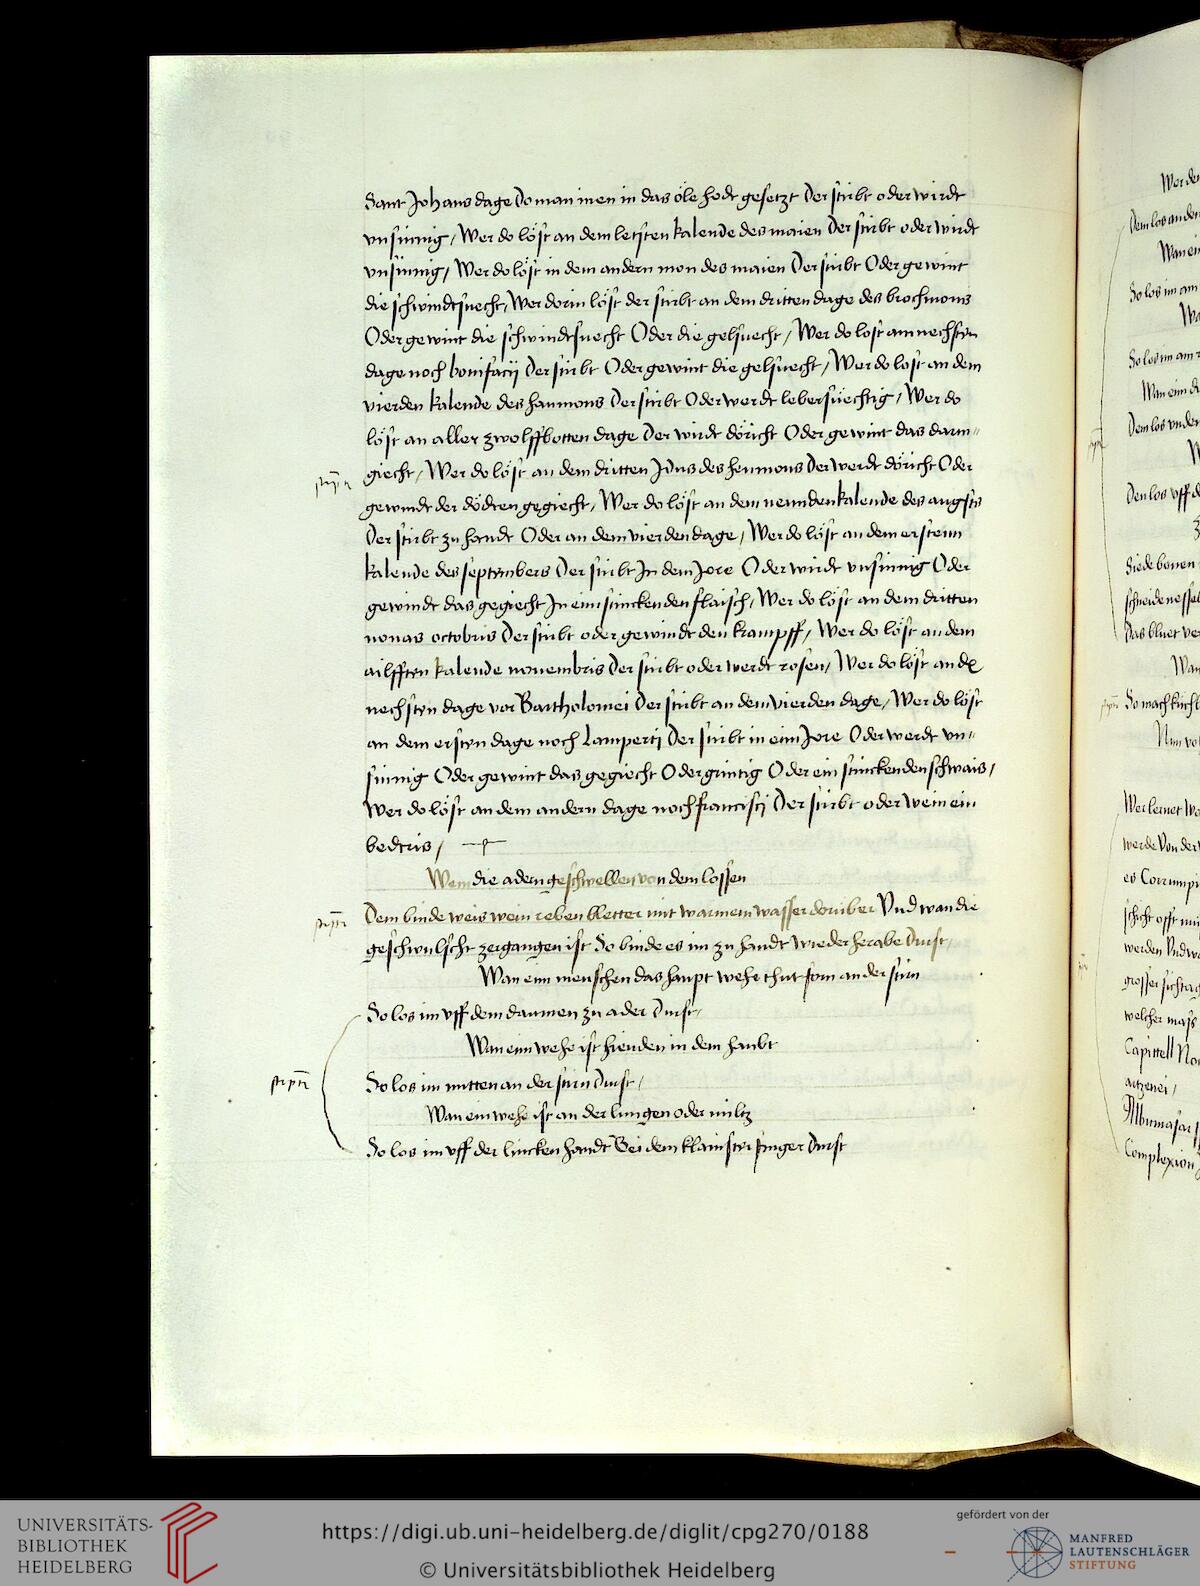 Sant Johans dage Do man inen in das öle hodt gesetzt Der stirbt oder wirdt
vnsinnig / Wer do löst an dem letsten kalende des maien Der stirbt oder wirdt
vnsinnig / Wer do löst in dem andern mon des maien Der stirbt Oder gewint
die schwindtsuecht / Wer dorin löst der stirbt an dem dritten dage des brochmons
Oder gewint die schwindtsuecht Oder die gelsuecht / Wer do lost am nechsten
dage noch bonifacij Der stirbt Oder gewint die gelsuecht / Wer do lost an dem
vierden kalende des haumons Der stirbt Oder werdt lebersüechtig / Wer do
löst an aller zwolffbotten dage Der wirdt döricht Oder gewint das darm-
giecht / Wer do löst an dem dritten Jdus des heumons Der werdt döricht Oder
gewindt der dödten gegiecht / Wer do löst an dem neunden kalende des augsts
Der stirbt zu handt Oder an dem vierden dage / Wer do löst an dem erstenn
kalende des septembers Der stirbt Jn dem Jore Oder wirdt vnsinnig Oder
gewindt das gegiecht Jn eim stinckenden flaisch / Wer do löst an dem dritten
nonas octobris Der stirbt oder gewindt den krampff / Wer do löst an dem
ailfften kalende nouembris Der stirbt oder werdt rosen / Wer do löst an de
nechsten dage vor Bartholomei Der stirbt an dem vierden dage / Wer do löst
an dem ersten dage noch Lamperti Der stirbt in eim Jore Oder werdt vn-
sinnig Oder gewint das gegiecht Oder grintig Oder ein stinckenden schwais /
Wer do löst an dem andern dage noch francisci Der stirbt oder wein ein
bedtris /
Wem die adern geschwellen von dem lossen
Dem binde weis wein reben bletter mit warmem wasser doruber Vnd wan die
geschwulscht zergangen ist So binde es im zu handt wieder herabe Durst /
Wan eim menschen das haupt wehe thut forn an der stirn
So los im vff dem daumen zu ader Durst /
Wan eim wehe ist hienden in dem haubt
So los im mitten an der stirn Durst /
Wan eim wehe ist an der lungen oder miltz
So los im vff der lincken handt Bei dem klainsten finger Durst
Wer de
Dem los an den
Wan ein
So los im am
So los im am
Wan eim
Dem los vnder
Den los vff
Siede bonen
schneide nessel
Das bluet ver
Wan
So mach kuchl
Nim
Wer lernet
werde Von der
es Corrumpi
schicht offt mit
werden Vnd wa
grosser sichtag
welcher mass
Capittell No
artznei /
Albumasar
Complexion
UNIVERSITÄTS-
BIBLIOTHEK
HEIDELBERG
https://digi.ub.uni-heidelberg.de/diglit/cpg270/0188
© Universitätsbibliothek Heidelberg
gefördert von der
MANFRED
LAUTENSCHLÄGER
STIFTUNG